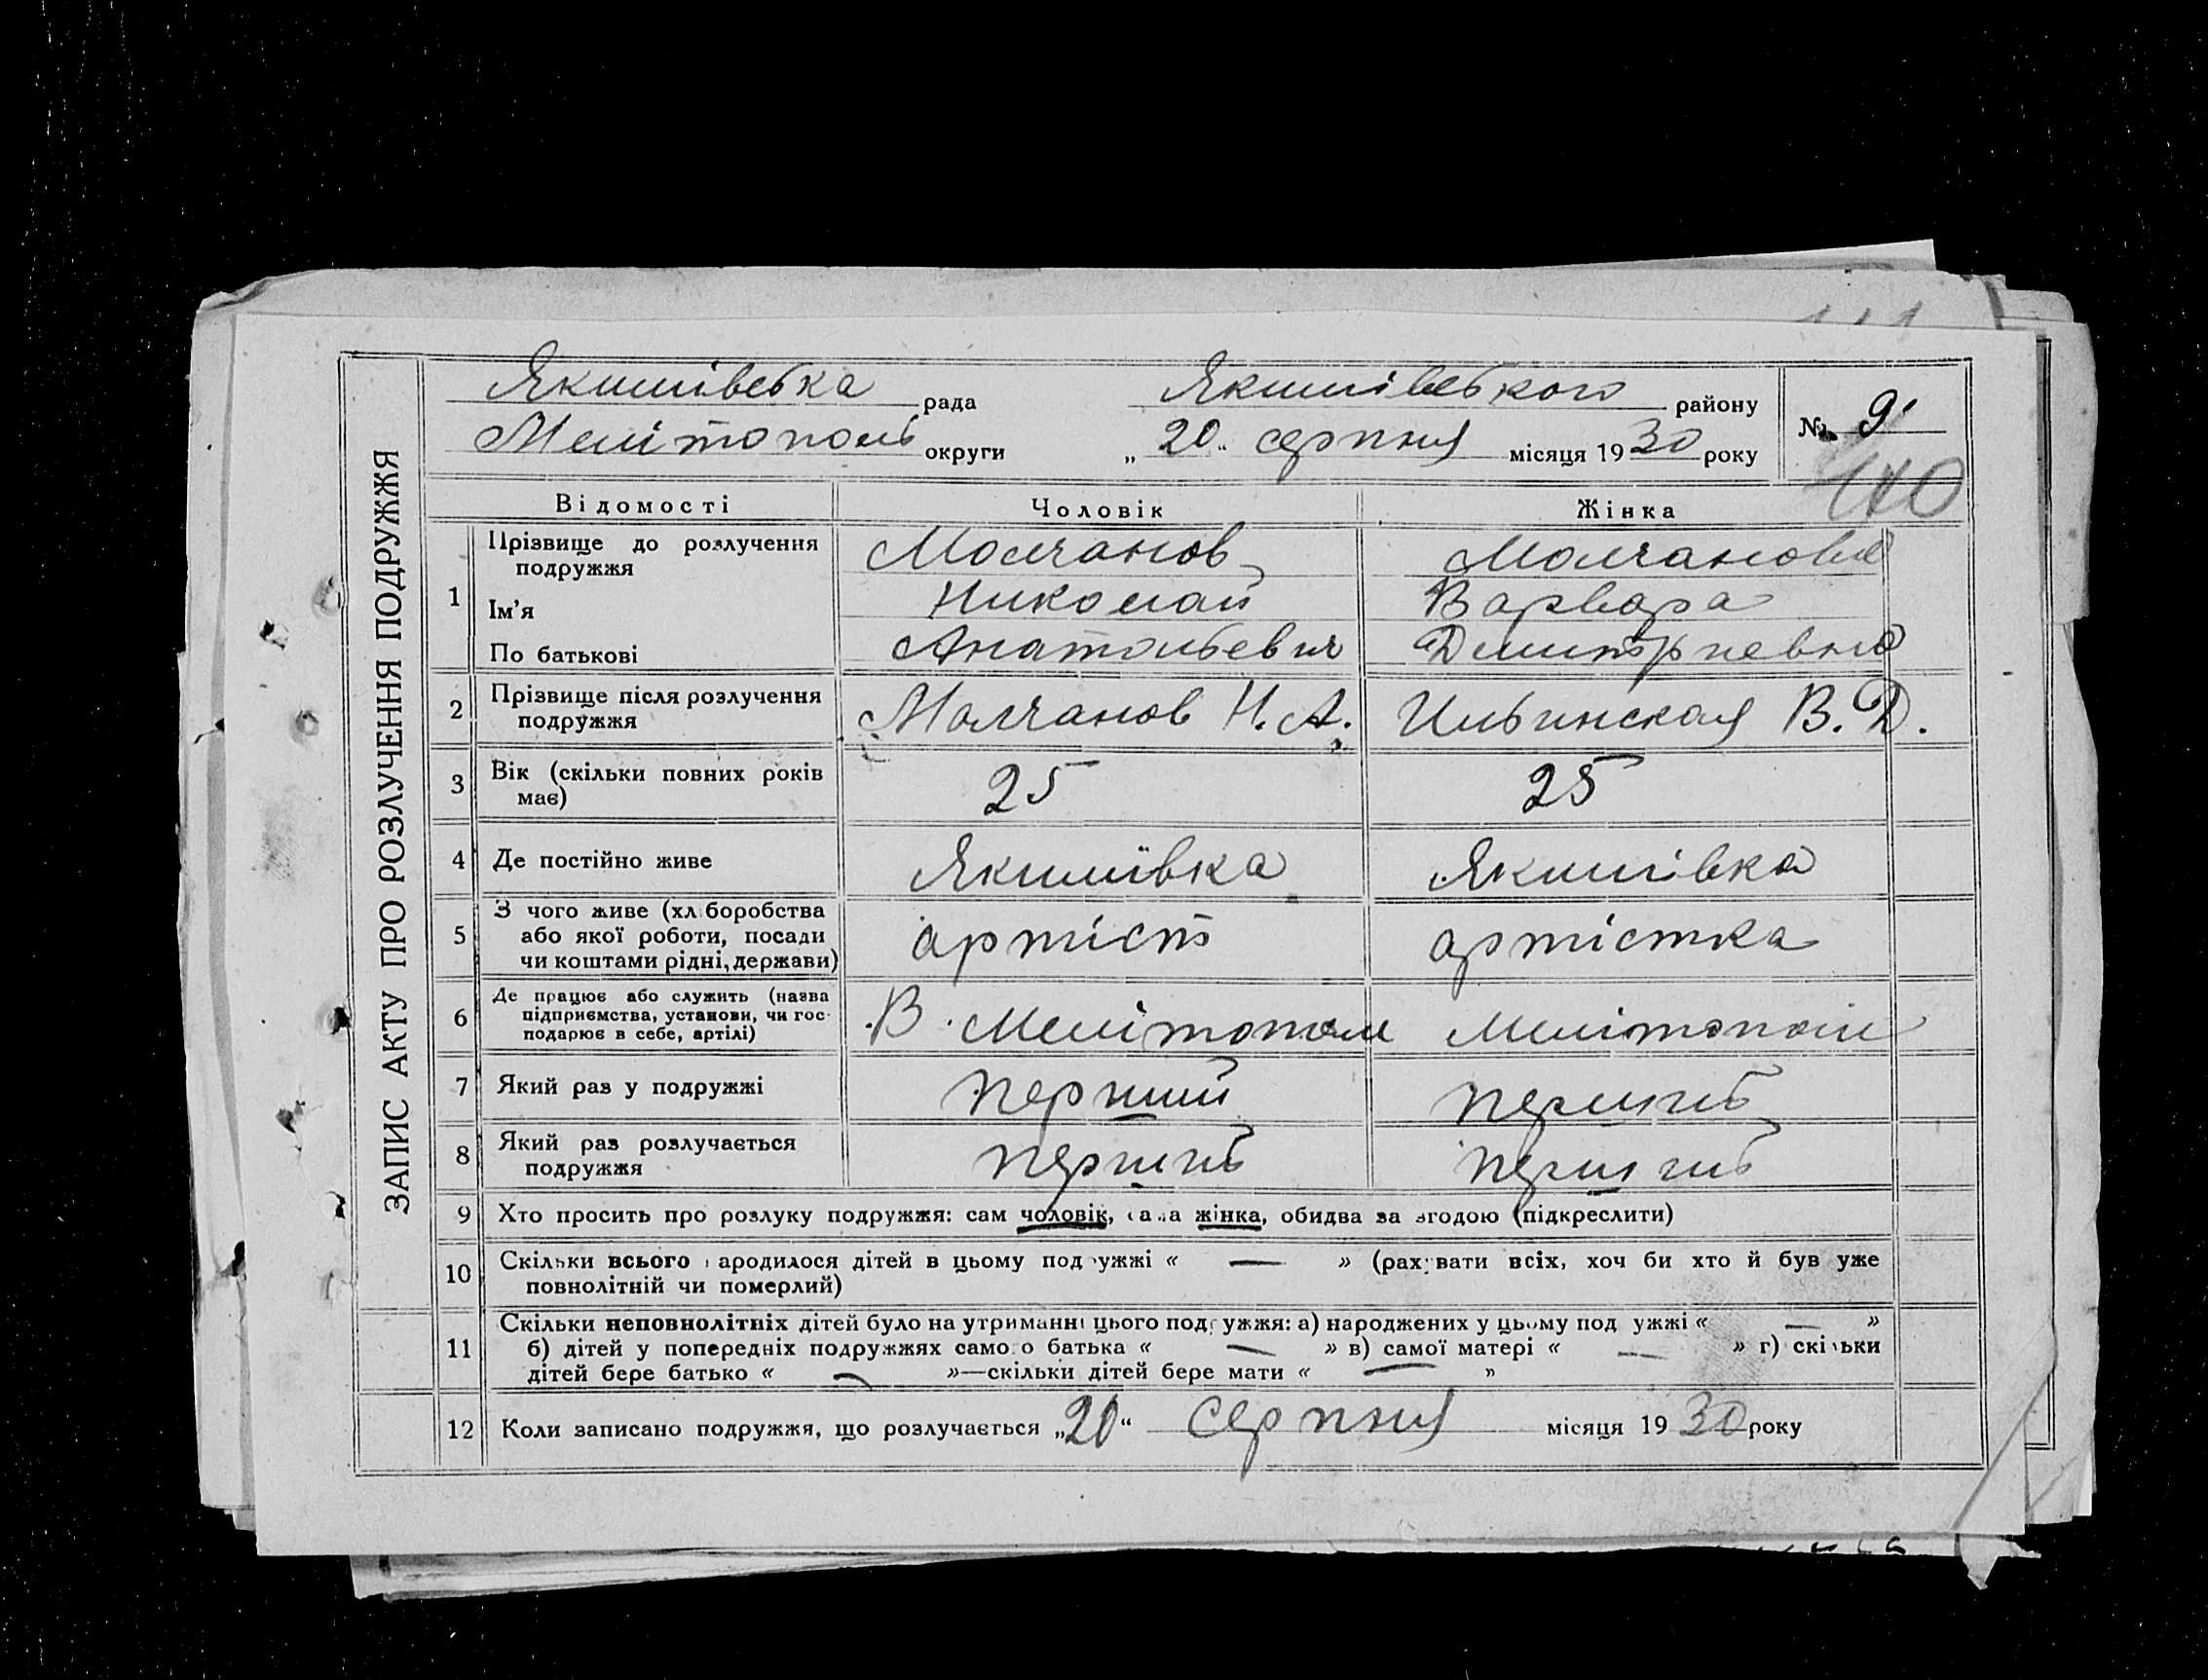 ЗАПИС АКТУ ПРО РОЗЛУЧЕННЯ ПОДРУЖЖЯ
Якимівська рада Якимівського району № 9
Мелітополь округи „20" серпня місяця 1930 року
140
Відомості Чоловік Жінка
1 Прізвище до розлучення подружжя Молчанов Молчанова
Ім'я Николай Варвара
По батькові Анатольевич Дмитриевна
2 Прізвище після розлучення подружжя Молчанов Н. А. Ильинская В. Д.
3 Вік (скільки повних років має) 25 25
4 Де постійно живе Якимівка Якимівка
5 З чого живе (хліборобства або якої роботи, посади чи коштами рідні, держави) артіст артістка
6 Де працює або служить (назва підприємства, установи, чи господарює в себе, артілі) В. Мелітополі Мелітополі
7 Який раз у подружжі перший перший
8 Який раз розлучається подружжя перший перший
9 Хто просить про розлуку подружжя: сам чоловік, сама жінка, обидва за згодою (підкреслити)
10 Скільки всього народилося дітей в цьому подружжі « — » (рахувати всіх, хоч би хто й був уже
повнолітній чи померлий)
11 Скільки неповнолітніх дітей було на утриманні цього подружжя: а) народжених у цьому подружжі « — »
б) дітей у попередніх подружжях самого батька « — » в) самої матері « — » г) скільки
дітей бере батько « — »—скільки дітей бере мати « — »
12 Коли записано подружжя, що розлучається „20" серпня місяця 1930 року